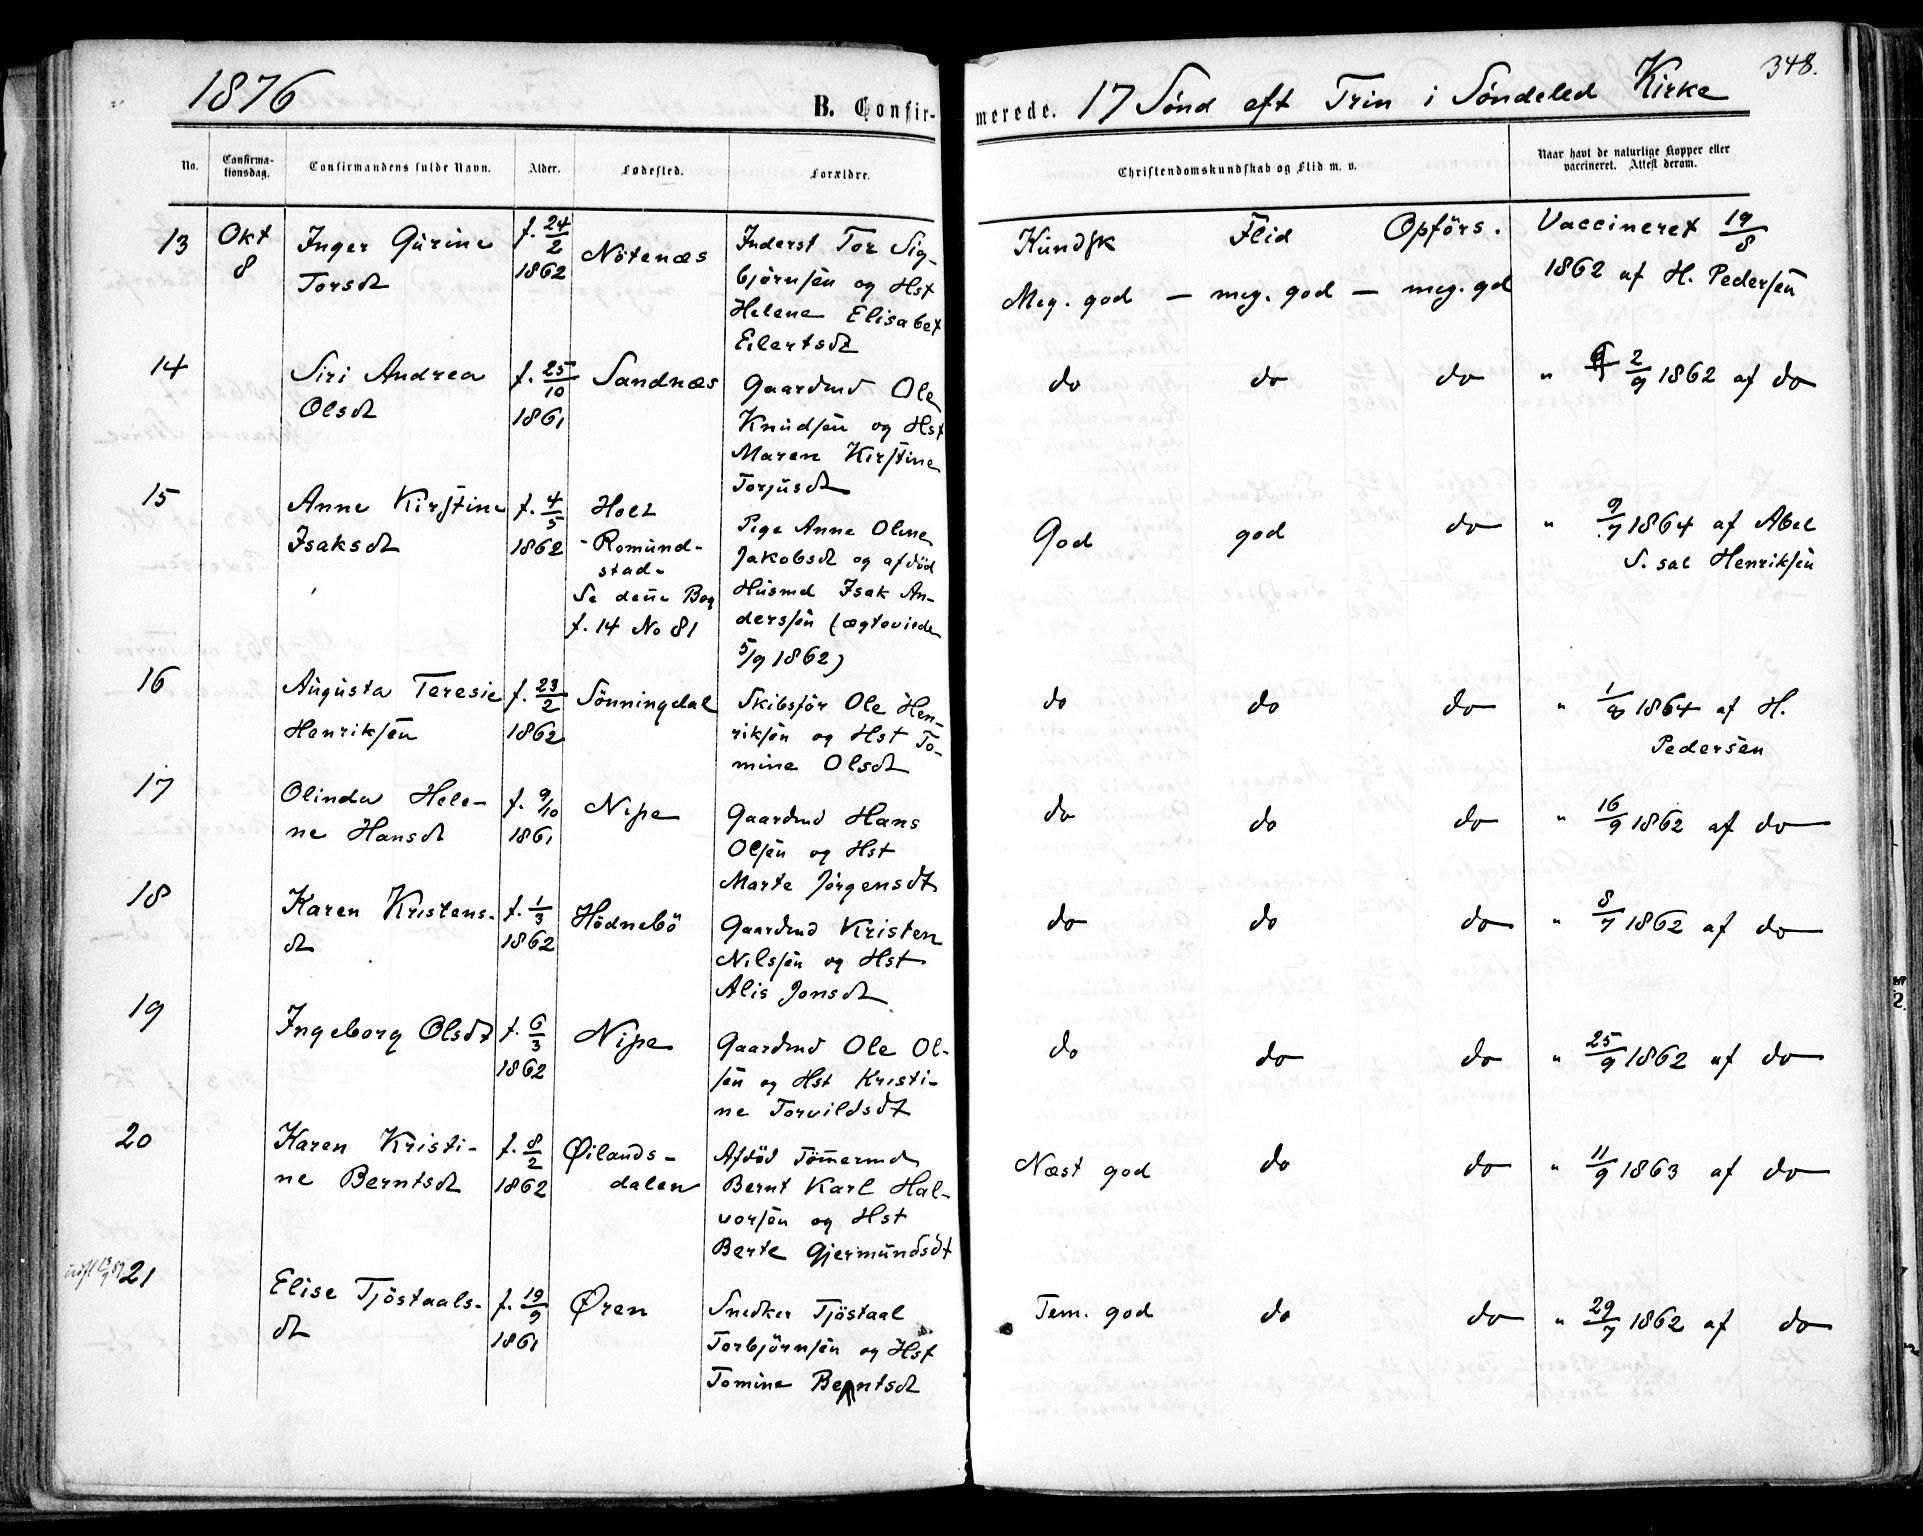 1876
B. Confir-
merede. 17 Sönd eft Trin i Söndeled Kirke
348.
No. Confirma-tionsdag. Confirmandens fulde Navn. Alder. Fødested. Forældre. Christendomskundskab og Flid m. v. Naar havt de naturlige Kopper eller vaccineret. Attest derom.
13 Okt Inger Gurine f. 24/2 Nötenæs Inderst Tor Sig- Kundsk Flid Opförs. Vaccineret 19/8
8 Torsdt 1862 björnsen og Hst Meg. god — meg. god — meg. gd 1862 af H. Pedersen
Helene Elisabet
Eilertsdt
14 Siri Andrea f. 25/10 Sandnæs Gaardmd Ole do do do " 2/9 1862 af do
Olsdt 1861 Knudsen og Hst
Maren Kirstine
Torjusdt
15 Anne Kirstine f. 4/5 Holt Pige Anne Oline God god do " 9/7 1864 af Abel
Isaksdt 1862 - Romund- Jakobsdt og afdöd S. sal Henriksen
stad- Husmd Isak An-
Se denne Bog dersen (ægteviede
f. 14 No 81 5/9 1862)
16 Augusta Teresie f. 23/2 Sönningdal Skibsför Ole Hen- do do do " 1/8 1864 af H.
Henriksen 1862 riksen og Hst To- Pedersen
mine Olsdt
17 Olinda Hele- f. 9/10 Nipe Gaardmd Hans do do do " 16/9 1862 af do
ne Hansdt 1861 Olsen og Hst
Marte Jörgensdt
18 Karen Kristens- f. 1/3 Hödnebö Gaardmd Kristen do do do " 8/7 1862 af do
dt 1862 Nilssen og Hst
Alis Jonsdt
19 Ingeborg Olsdt f. 6/3 Nipe Gaardmd Ole Ol- do do do " 25/9 1862 af do
1862 sen og Hst Kristi-
ne Torvildsdt
20 Karen Kristi- f. 8/2 Øilands- Afdöd Tömermd Næst god do do " 11/9 1863 af do
ne Berntsdt 1862 dalen Bernt Karl Hal-
vorsen og Hst
Berte Gjermundsdt
21 Elise Tjöstaals- f. 19/9 Øren Snedker Tjöstaal Tem. god do do " 29/7 1862 af do
dt 1861 Torbjörnsen og Hst
Tomine Berntsdt